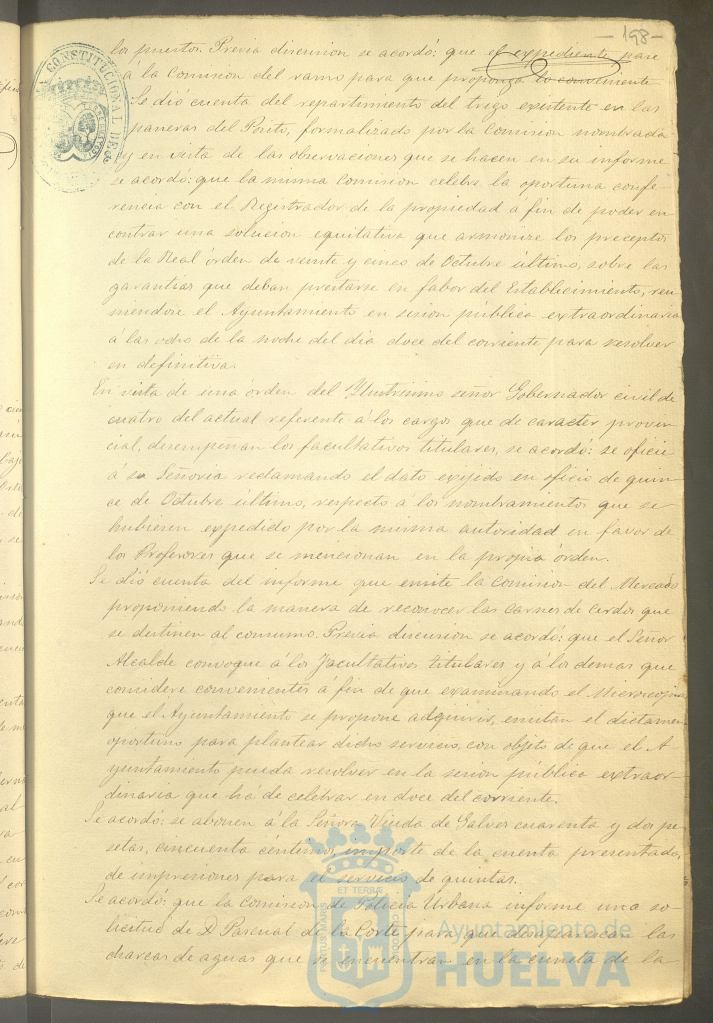 -198-
los puestos. Previa discusion se acordó: que el expediente pase
á la Comision del ramo para que proponga lo conveniente
Se dió cuenta del repartimiento del trigo existente en las
paneras del Pósito, formalizado por la Comision nombrada
y en vista de las observaciones que se hacen en su informe
se acordó: que la misma Comision celebre la oportuna confe-
rencia con el Registrador de la propiedad a fin de poder en
contrar una solucion equitativa que armonize los preceptos
de la Real órden de veinte y cinco de Octubre último, sobre las
garantias que deban prestarse en favor del Establecimiento, reu
niendose el Ayuntamiento en sesion pública extraordinaria
á las ocho de la noche del dia doce del corriente para resolver
en definitiva.
En vista de una órden del Ylustrisimo señor Gobernador civil de
cuatro del actual referente á los cargos que de caracter provin-
cial, desempeñan los facultativos titulares, se acordó: se oficie
á su Señoria reclamando el dato exijido en oficio de quin-
ce de Octubre último, respecto á los nombramientos que se
hubiesen expedido por la misma autoridad en favor de
los Profesores que se mencionan en la propia órden.
Se dió cuenta del informe que emite la Comision del Mercado
proponiendo la manera de reconocer las carnes de cerdos que
se destinen al consumo. Previa discusion se acordó: que el Señor
Alcalde convoque á los facultativos titulares y á los demas que
considere convenientes á fin de que examinando el Microscopio
que el Ayuntamiento se propone adquirir, emitan el dictamen
oportuno para plantear dicho servicio, con objeto de que el A-
yuntamiento pueda resolver en la sesion pública extraor-
dinaria que há de celebrar en doce del corriente.
Se acordó: se abonen á la Señora Viuda de Galvez cuarenta y dos pe-
setas, cincuenta céntimos, importe de la cuenta presentada,
de impresiones para el servicio de quintas.
Se acordó: que la Comision de Policia Urbana informe una so-
licitud de D. Pascual de la Corte para que desaparescan las
charcas de aguas que se encuentran en la cuneta de la
CONSTITUCIONAL DE
PORTUS MARIS ET TERRAE CUSTODIA
Ayuntamiento de
HUELVA